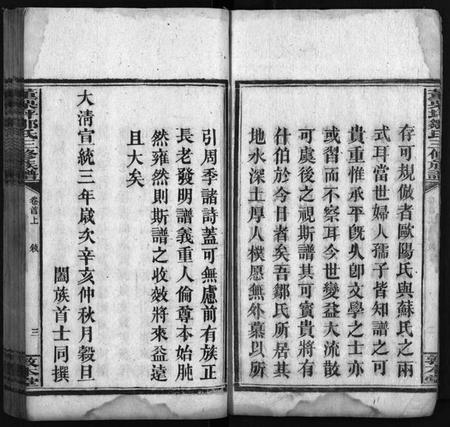 存可規倣者歐陽氏與蘇氏之兩
式耳當世婦人孺子皆知譜之可
貴重惟承平旣久卽文學之士亦
或習而不察耳今世變益大流散
可虞後之視斯譜其可寳貴將有
什伯於今日者矣吾鄒氏所居其
地水深土厚人樸愿無外慕以所
引周季諸詩蓋可無慮前有族正
長老發明譜義重人倫尊本始肫
然雍然則斯譜之收效將來益遠
且大矣
大淸宣統三年歲次辛亥仲秋月穀旦
闔族首士同撰
鄒氏三修族譜
卷首上
三
敦本堂